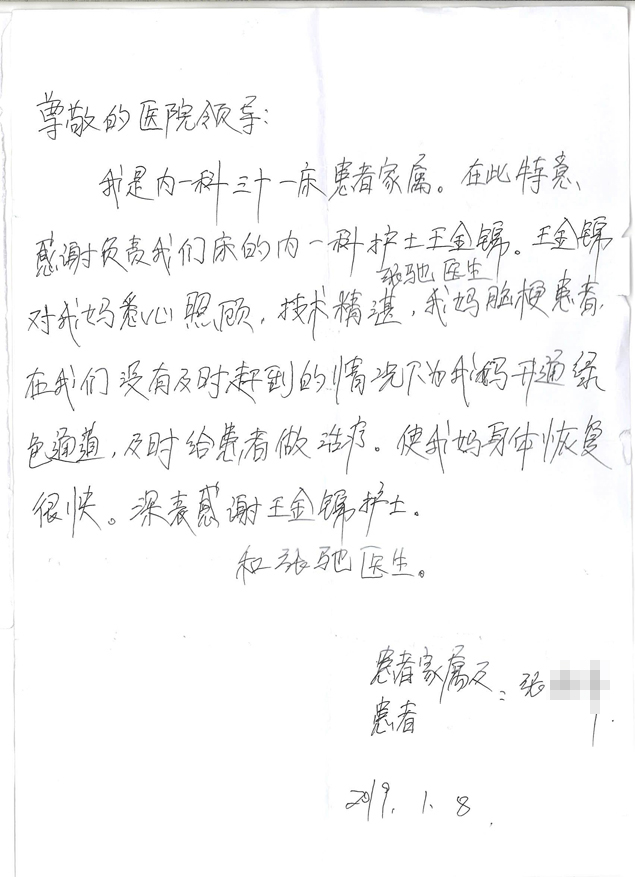 尊敬的医院领导:
我是内一科三十一床患者家属。在此特意
感谢负责我们床的内一科护士王金锡。王金锡
张驰医生
对我妈悉心照顾，技术精湛，我妈脑梗患者，
在我们没有及时赶到的情况下为我妈开通绿
色通道，及时给患者做治疗。使我妈身体恢复
很快。深表感谢王金锡护士。
和张驰医生。
患者家属及
患者
：张
2019.1.8.